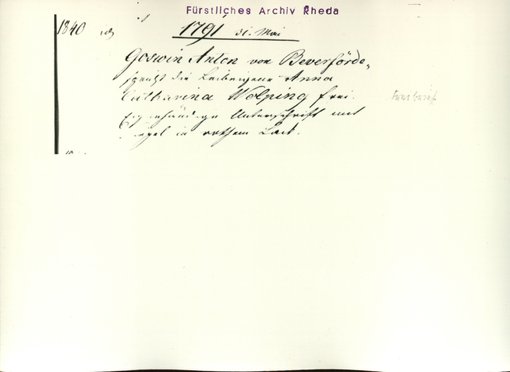 Fürstliches Archiv Rheda
1840 1791 31. Mai
Goswin Anton von Beverförde,
spricht die Anna
Catharina Wolping frei.
Eigenhändige Unterschrift und
Siegel in rothem Lack.